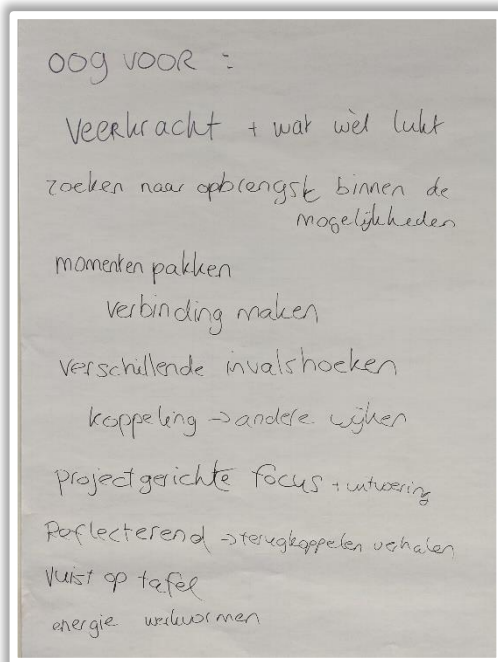 oog voor :
Veerkracht + wat wèl lukt
zoeken naar opbrengst binnen de
mogelijkheden
momenten pakken
verbinding maken
verschillende invalshoeken
koppeling -> andere wijken
projectgerichte focus + uitvoering
Reflecterend -> terugkoppelen verhalen
vuist op tafel
energie werkvormen